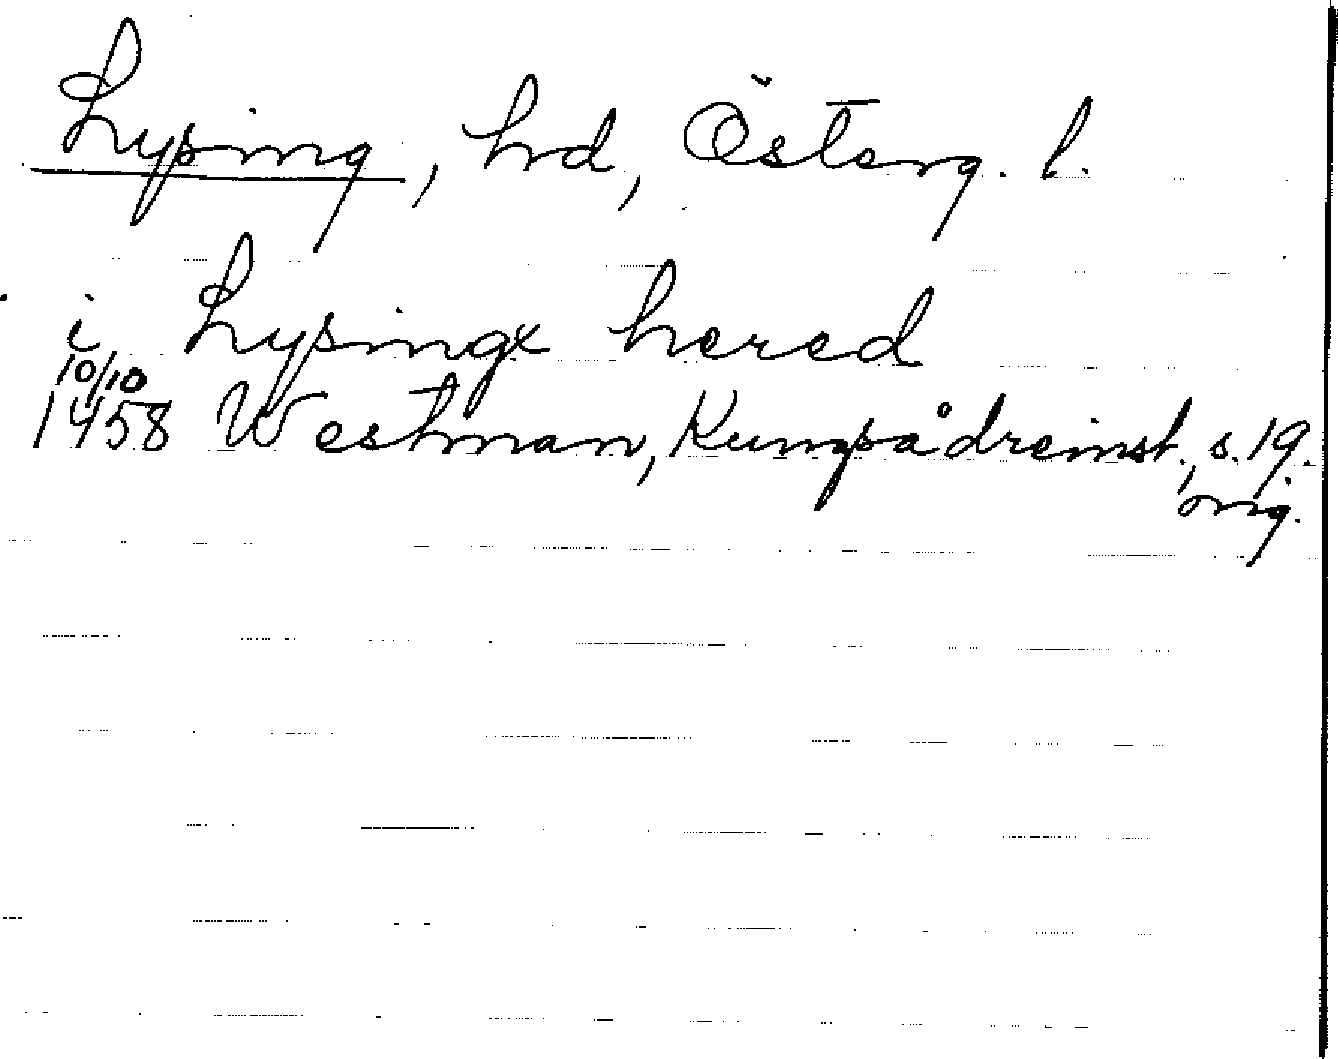 Lysing, hrd, Österg. l.
i Lysingx hered
10/10
1458 Westman, Kungsådreinst., s. 19.
orig.